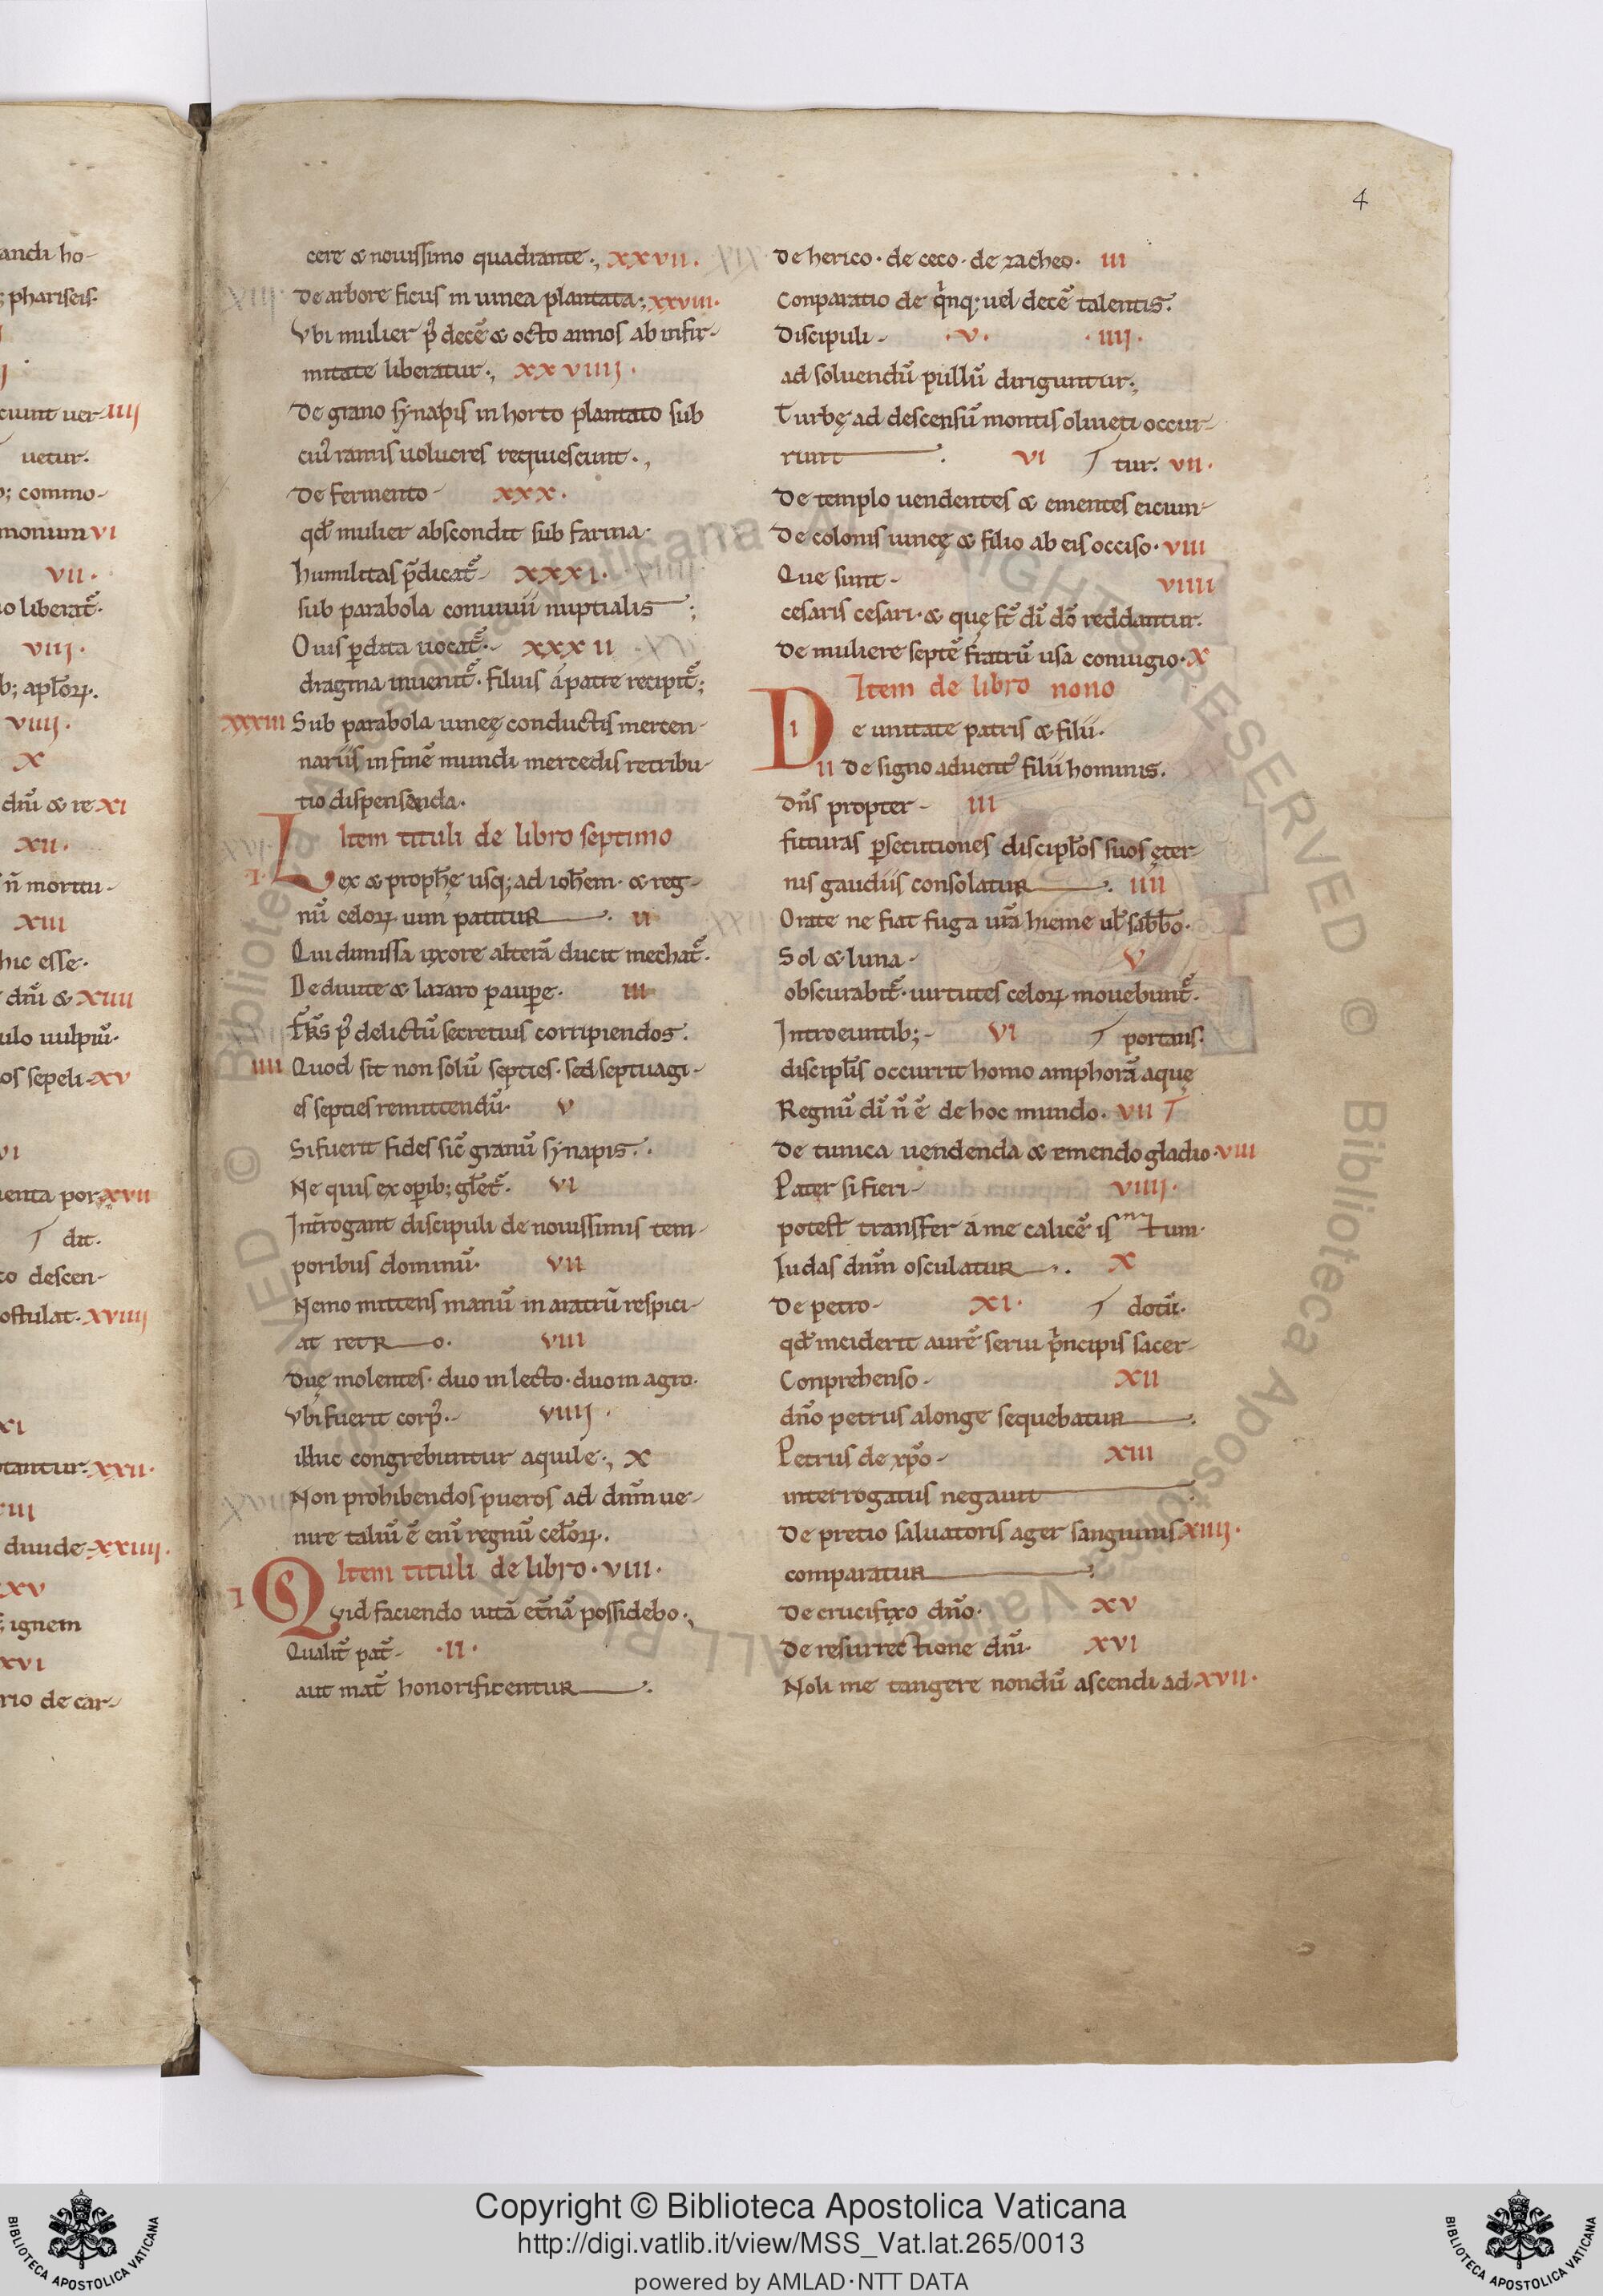 andi ho-
; phariseis.
ciunt uer-IIIJ
uetur.
b; commo-
monum VI
VII.
io liberat̄.
VIIJ.
b; apl̄oꝝ.
VIIIJ.
X
dn̄i & re XI
XII.
n̄ mortu-
XIII
hic esse.
dn̄i & XIIII
ulo uulpiū.
os sepeli-XV
VI
uenta por-XVII
dit.
to descen-
ostulat. XVIIIJ
XI
ptantur. XXII.
III
diuide-XXIIIJ.
XXV
ignem
XVI
rio de car-
4
cere & nouissimo quadrante., XXVII.
De arbore ficus in uinea plantata; XXVIII.
Vbi mulier p̄ decē & octo annos ab infir-
mitate liberatur., XXVIIIJ.
De grano synapis in horto plantato sub
cuiꝰ ramis uolucres requiescunt.,
De fermento- XXX.
qd̄ mulier abscondit sub farina.
humilitas p̄dicat̄- XXXI.
sub parabola conuiuii nuptialis;
Ouis ꝑdita uocat̄.- XXXII
dragma inuenit̄. filius á patre recipit̄;
XXXIII Sub parabola uineę conductis mercen-
nariis in finē mundi mercedis retribu-
tio dispensenda.
Item tituli de libro septimo
I. Lex & proph̄ę usq; ad ioh̄em. & reg-
nū celoꝝ uim patituR. II
Qui dimissa uxore alterā ducit mechat̄.
De diuite & lazaro paupe. III
Fr̄s p̄ delictū secretius corripiendos.
IIII Quod sit non solū septies. sed septuagi-
es septies remittendū. V
Si fuerit fides sic̄ granū synapis..
Ne quis ex opib; gl̄et̄. VI
Int̄rogant discipuli de nouissimis tem-
poribus dominū. VII
Nemo mittens manū in aratrū respici-
at retRo. VIII
Duę molentes. duo in lecto. duo in agro.
Vbi fuerit corpꝰ.- VIIIJ.
illuc congrebuntur aquile., X
Non prohibendos pueros ad dn̄m ue-
nire taliū ē enī regnū cel̄oꝝ.
Item tituli de libro. VIII.
I Quid faciendo uitā et̄nā possidebo.,
Qualit̄ pat̄- .II.
aut mat̄ honorificentuR.
De herico. de ceco. de zacheo. III
Conparatio de q̇nq; uel decē talentis.
Discipuli- .V. .IIIJ.
ad soluendū pullū diriguntur.;
Turbę ad descensū montis oliueti occur-
runt. VI tur. VII.
De templo uendentes & ementes eicium-
De colonis uineę & filio ab eis occiso. VIII
Que sunt- VIIII
cesaris cesari. & quę st̄ dī dō reddantur.
De muliere septē fratrū usa coniugio. X
Item de libro nono
I De unitate patris & filii.
II De signo aduentꝰ filii hominis.
Dn̄s propter- III
futuras ꝑsecutiones discipl̄os suos ęter-
nis gaudiis consolatuR. IIII
Orate ne fiat fuga ur̄a hieme ul̄ sab̄bo.
Sol & luna- V
obscurabit̄. uirtutes celoꝝ mouebunt̄.
Introeuntib;- VI portans.
discipl̄is occurrit homo amphorā aquę
Regnū dī n̄ ē de hoc mundo. VII
De tunica uendenda & emendo gladio. VIII
Pater si fieri- VIIIJ.
potest transfer á me calicē is tum.
Iudas dn̄m osculatuR. X
De petro- XI. dotū.
qd̄ inciderit aurē serui ṗncipis sacer-
Conprehenso- XII
dn̄o petrus a longe sequebatuR.
Petrus de xp̄o- XIII
interrogatus negauit
De pretio saluatoris ager sanguinis XIIIJ.
comparatuR
De crucifixo dn̄o. XV
De resurrectione dn̄i. XVI
Noli me tangere nondū ascendi ad XVII.
Copyright © Biblioteca Apostolica Vaticana
http://digi.vatlib.it/view/MSS_Vat.lat.265/0013
powered by AMLAD·NTT DATA
BIBLIOTECA APOSTOLICA VATICANA
BIBLIOTECA APOSTOLICA VATICANA